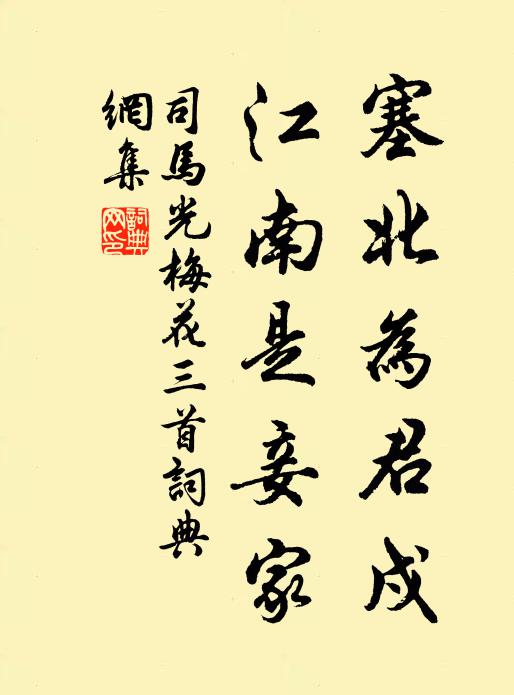 塞北為君戍
江南是妾家
司馬光梅花三首詞典
網集
詞典
网印